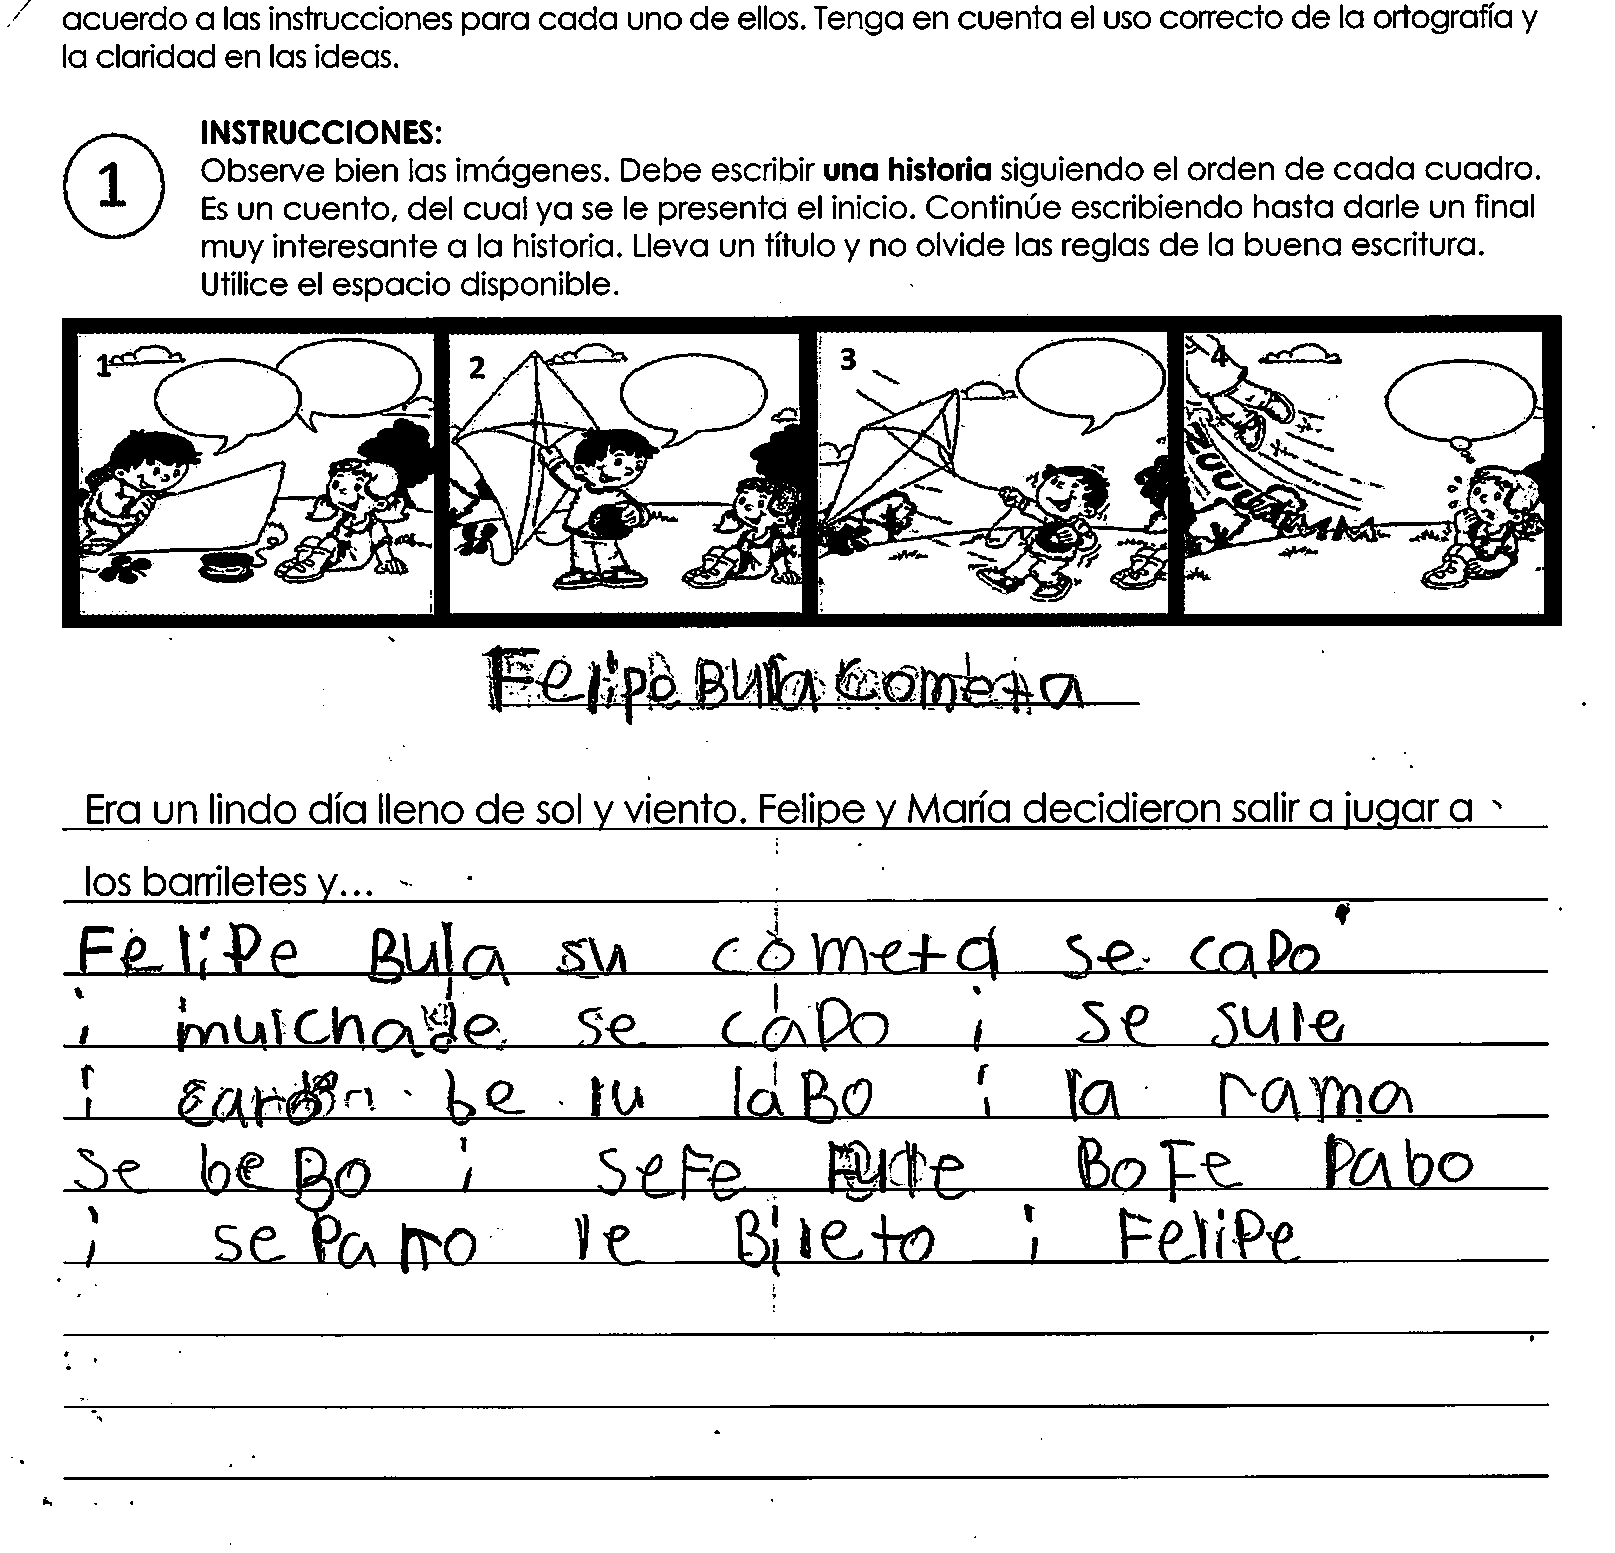 acuerdo a las instrucciones para cada uno de ellos. Tenga en cuenta el uso correcto de la ortografía y
la claridad en las ideas.
1
INSTRUCCIONES:
Observe bien las imágenes. Debe escribir una historia siguiendo el orden de cada cuadro.
Es un cuento, del cual ya se le presenta el inicio. Continúe escribiendo hasta darle un final
muy interesante a la historia. Lleva un título y no olvide las reglas de la buena escritura.
Utilice el espacio disponible.
1 2 3 4
Felipe Bula cometa
Era un lindo día lleno de sol y viento. Felipe y María decidieron salir a jugar a
los barriletes y...
FeliPe Bula su cometa se capo
i muichade se capo i se sule
i be lu laBo i la rama
se beBo i seFe BoFe Pabo
i se Parro le Bileto i FeliPe